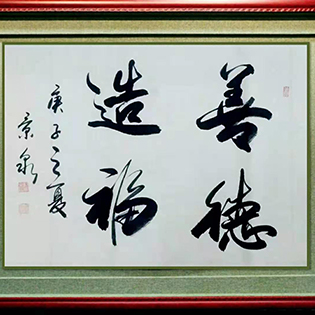 善德
造福
庚子之夏
景泉